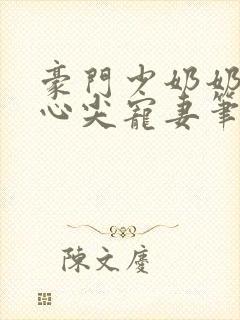 豪門少奶奶
心尖寵妻筆
陳文慶